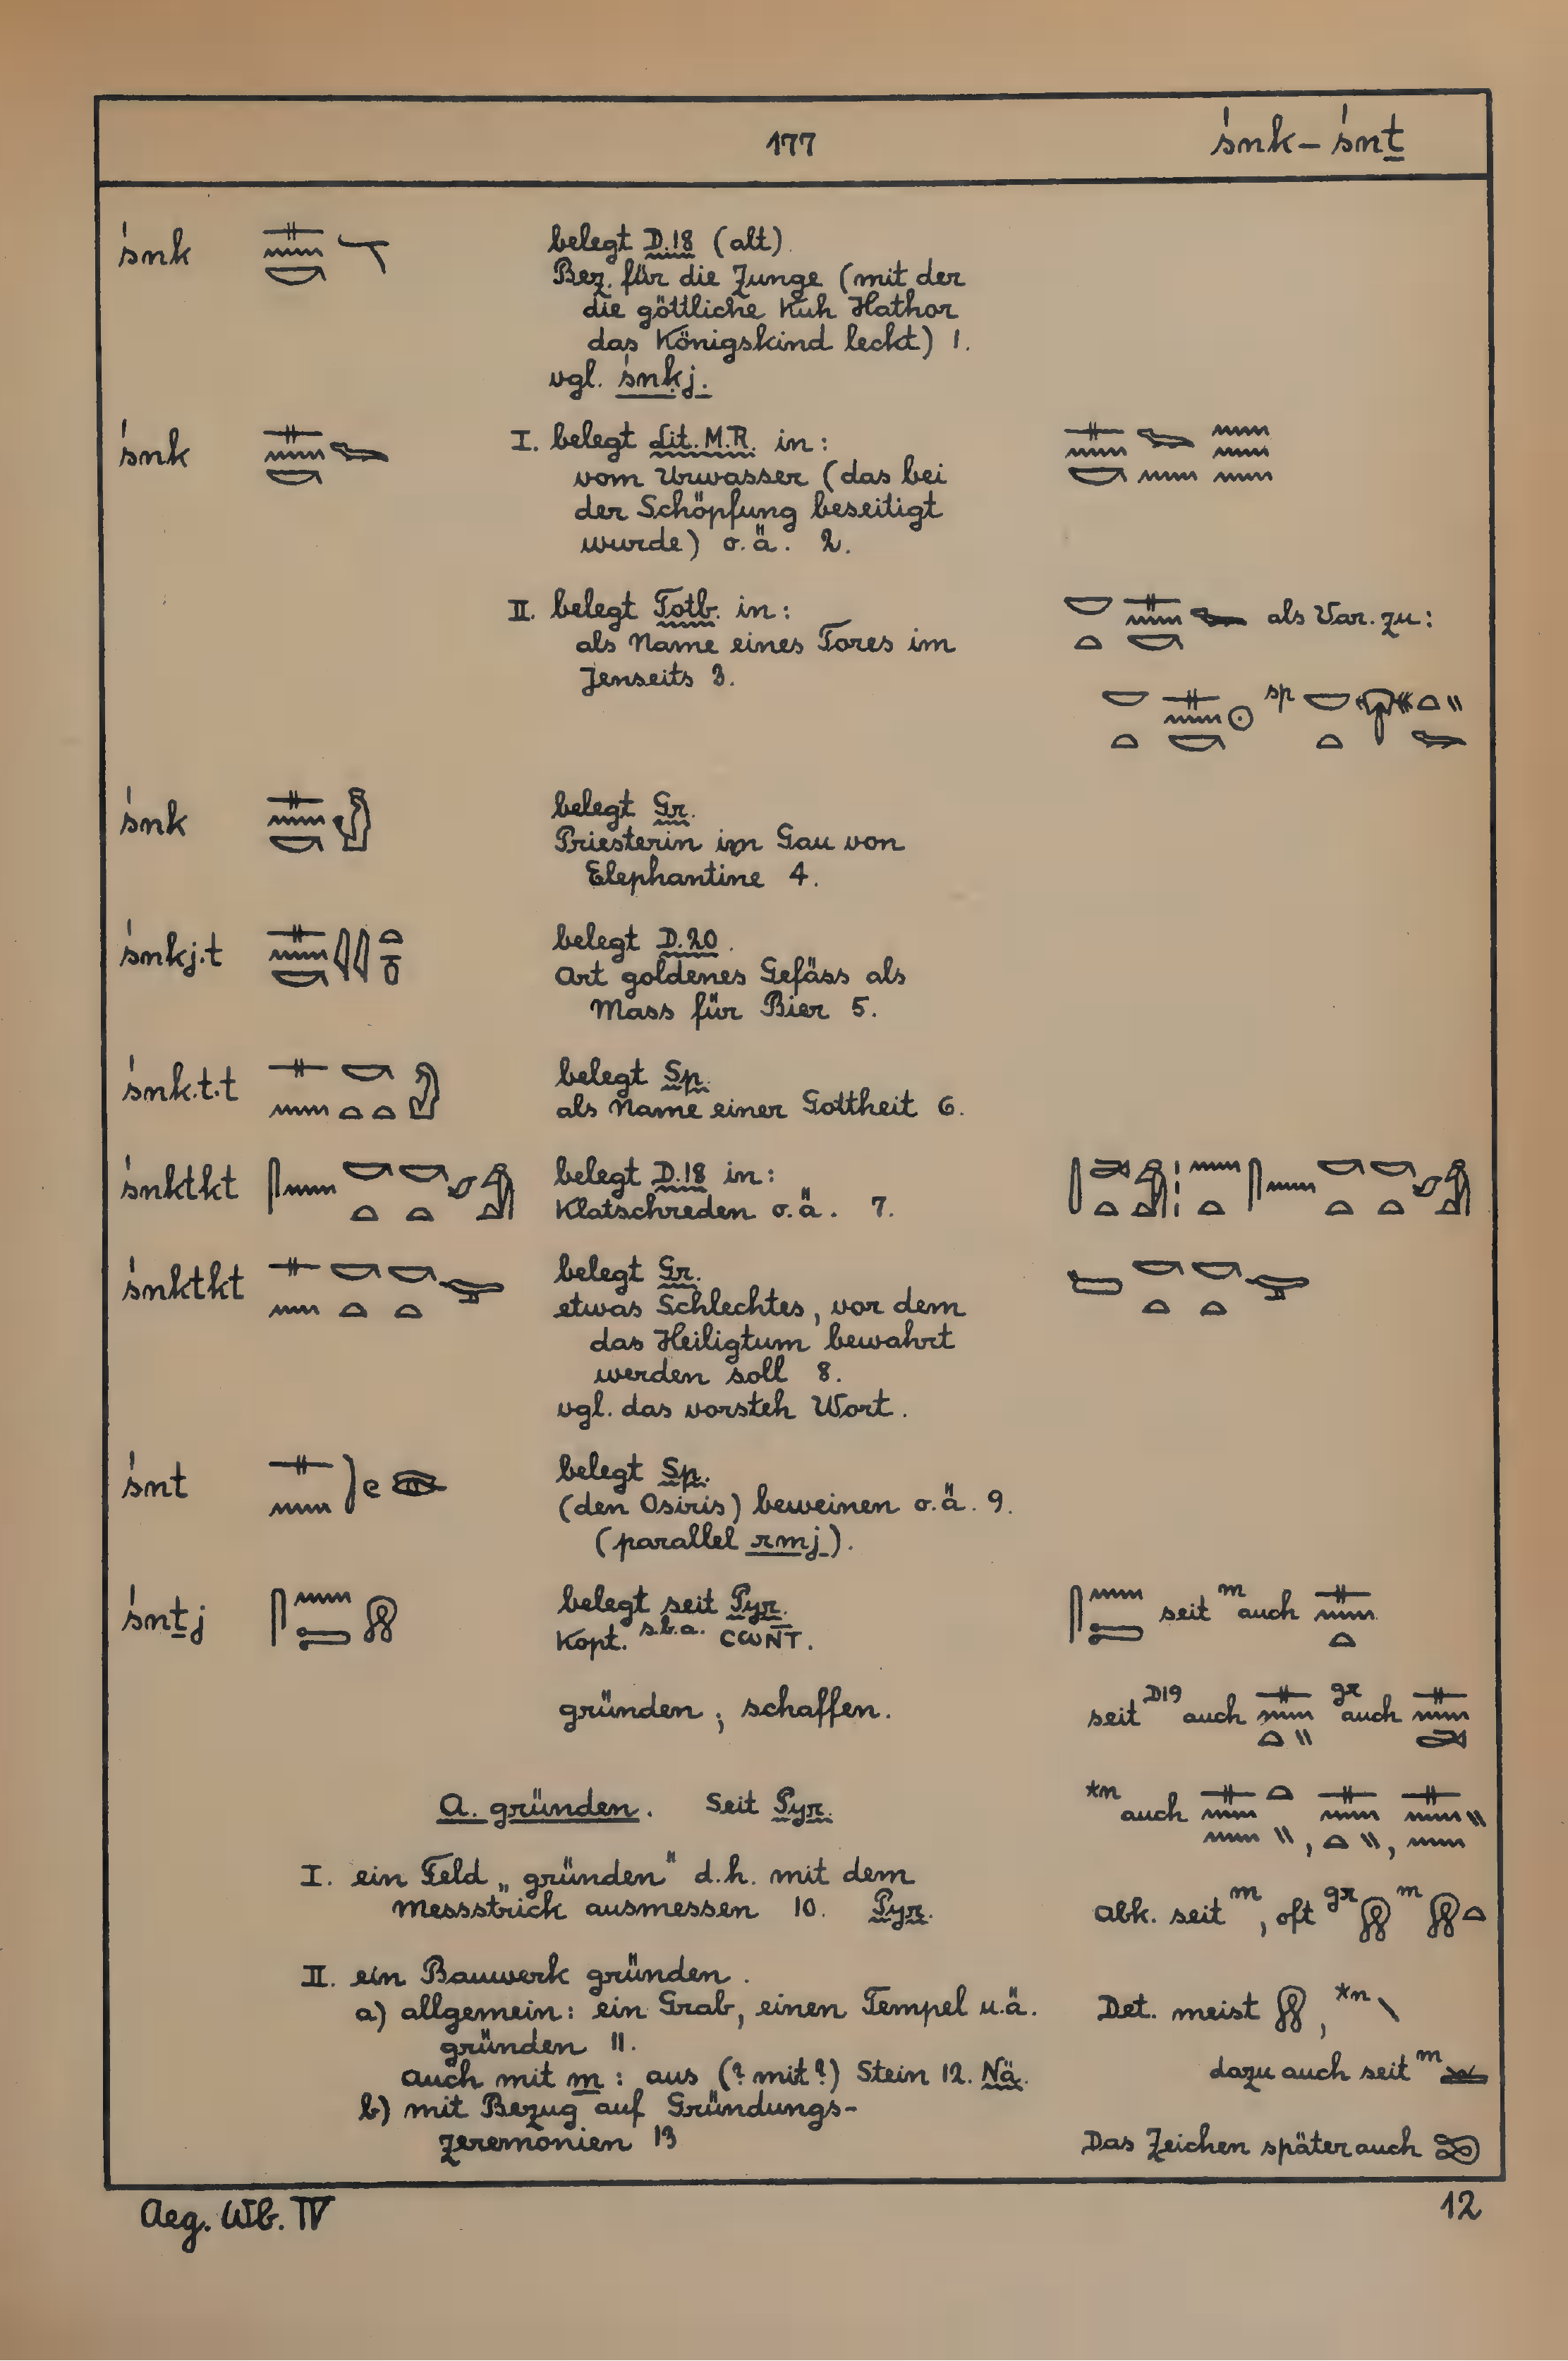 177
śnk – śnṯ
śnk
belegt D.18 (alt)
Bez. für die Zunge (mit der
die göttliche Kuh Hathor
das Königskind leckt) 1.
vgl. śnkj.
śnk
I. belegt Lit. M.R. in:
vom Urwasser (das bei
der Schöpfung beseitigt
wurde) o.ä. 2.
II. belegt Totb. in:
als Var. zu:
als Name eines Tores im
Jenseits 3.
sp
śnk
belegt Gr.
Priesterin im Gau von
Elephantine 4.
śnkj.t
belegt D.20.
Art goldenes Gefäss als
Mass für Bier 5.
śnk.t.t
belegt Sp.
als Name einer Gottheit 6.
śnktkt
belegt D.18 in:
Klatschreden o.ä. 7.
śnktkt
belegt Gr.
etwas Schlechtes, vor dem
das Heiligtum bewahrt
werden soll 8.
vgl. das vorsteh Wort.
śnt
belegt Sp.
(den Osiris) beweinen o.ä. 9.
(parallel rmj).
śnṯj
belegt seit Pyr.
seit m auch
Kopt. s.b.a. CⲰNT.
gründen; schaffen.
seit D19 auch gr auch
A. gründen. Seit Pyr.
*n auch
I. ein Feld „gründen" d.h. mit dem
Messstrick ausmessen 10. Pyr.
Abk. seit m, oft gr m
II. ein Bauwerk gründen.
a) allgemein: ein Grab, einen Tempel u.ä.
gründen 11.
Det. meist , *n
auch mit m: aus (? mit?) Stein 12. Nä.
dazu auch seit m
b) mit Bezug auf Gründungs-
zeremonien 13
Das Zeichen später auch
Aeg. Wb. IV
12